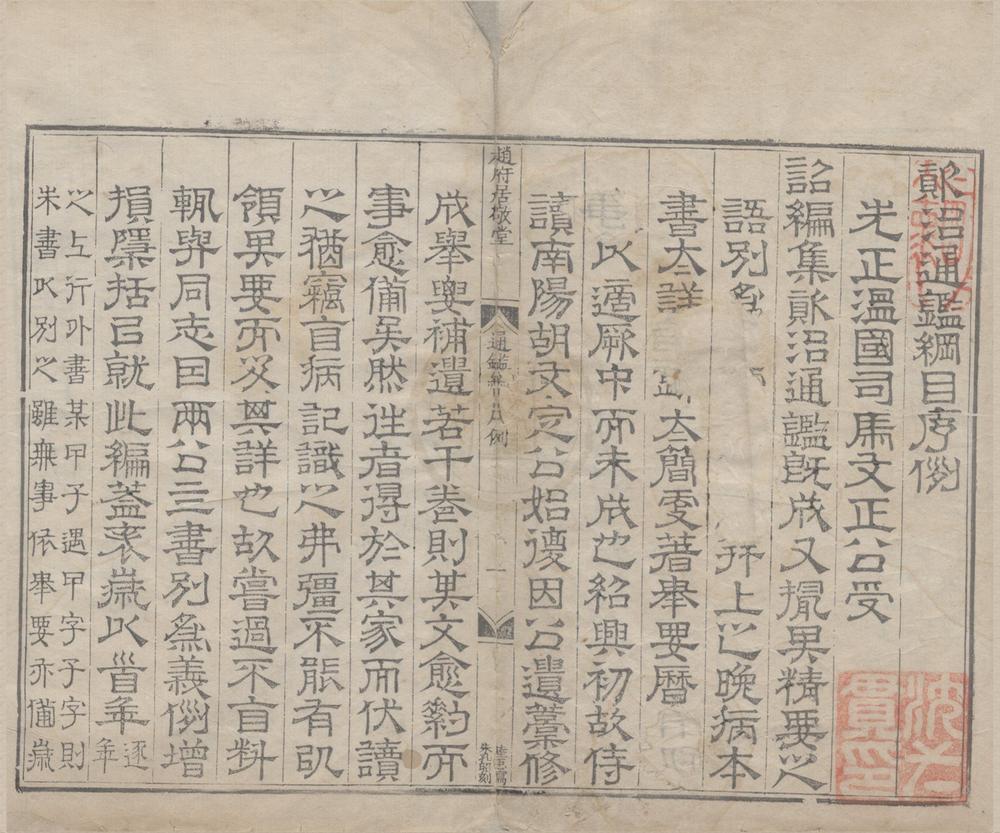 資治通鑑綱目序例
先正溫國司馬文正公受
詔編集資治通鑑既成又撮其精要之
語別為并上之晚病本
書太詳太簡更著舉要曆
以適厥中而未成也紹興初故侍
讀南陽胡文定公始復因公遺藁修
趙府居敬堂
通鑑綱目凡例
一
成舉要補遺若干卷則其文愈約而
事愈備矣然往者得於其家而伏讀
之猶竊自病記識之弗彊不能有以
領其要而及其詳也故嘗過不自料
輒與同志因兩公四書別為義例增
損檃括以就此編蓋表歲以首年
逐
年
之上行外書某甲子遇甲字子字則
朱書以別之雖無事依舉要亦備歲